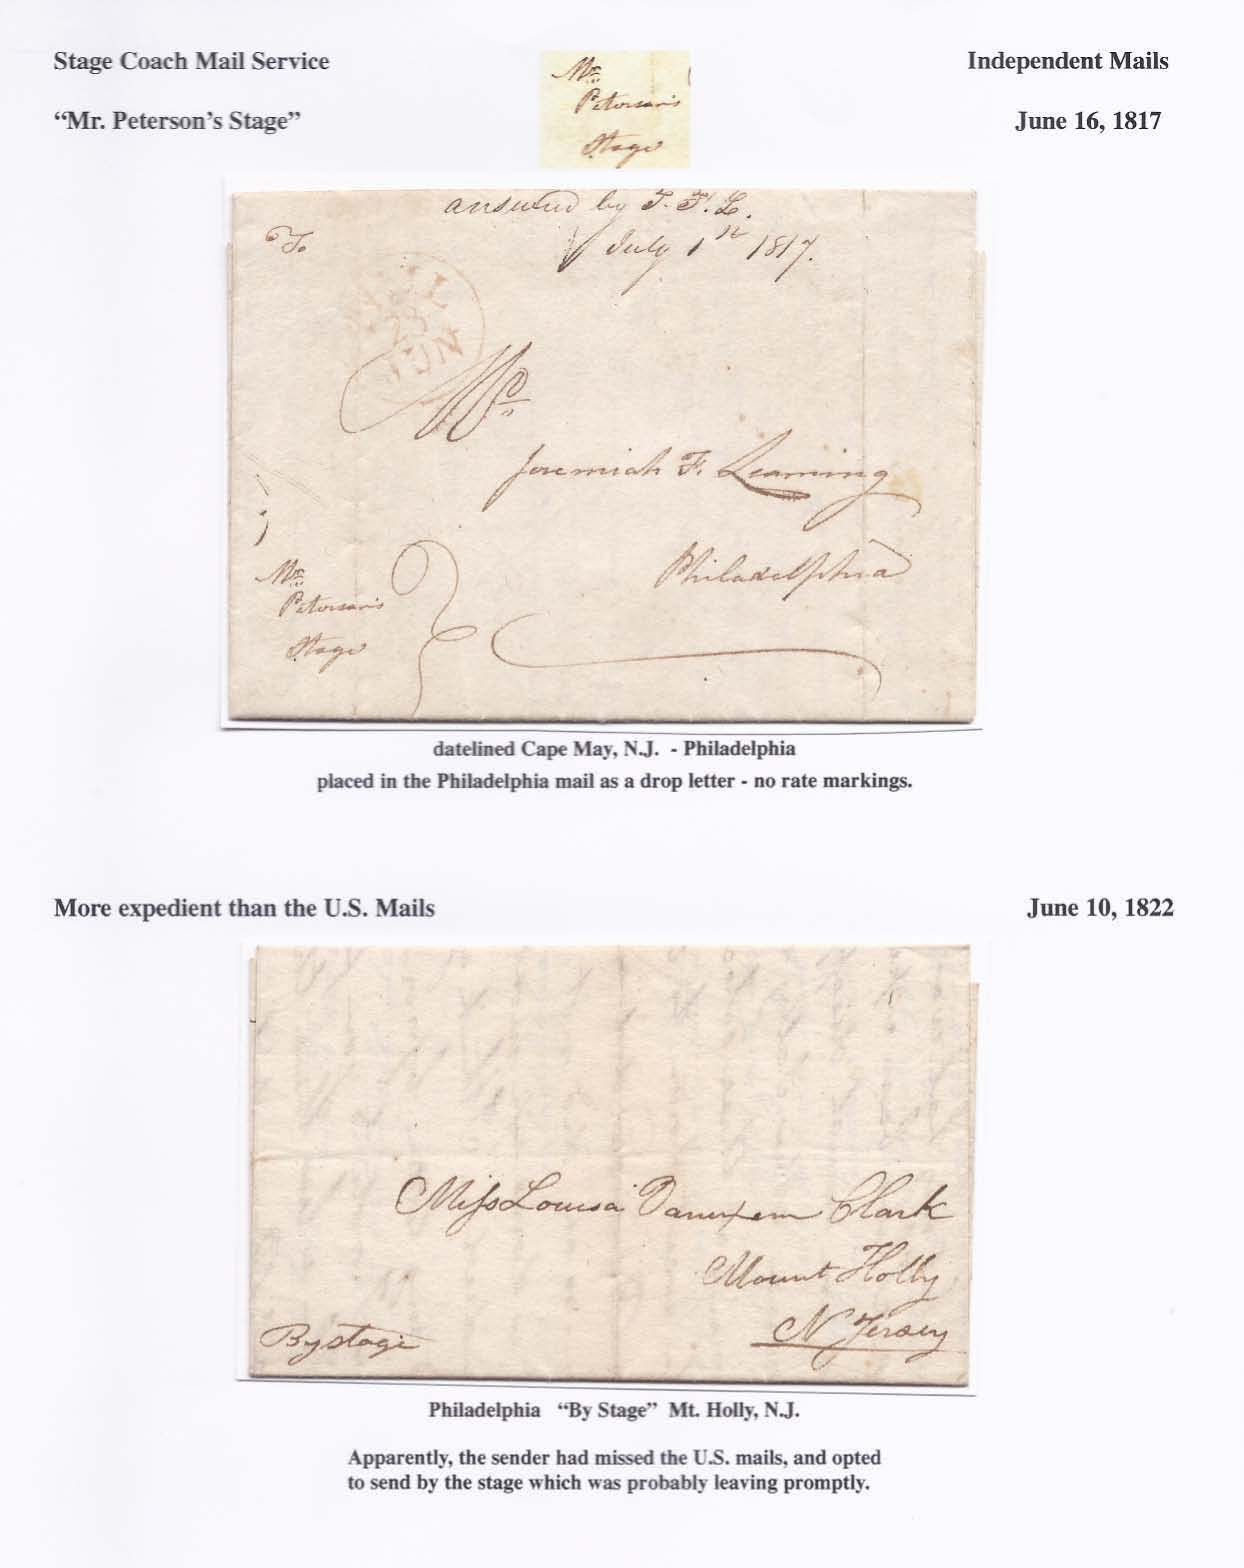 Stage Coach Mail Service
Independent Mails
"Mr. Peterson's Stage"
June 16, 1817
Mr.
Peterson's
Stage
answered by J. F. L.
July 1st 1817.
To
28
JUN
Mr.
Jeremiah F. Leaming
Philadelphia
Mr.
Peterson's
Stage
datelined Cape May, N.J. - Philadelphia
placed in the Philadelphia mail as a drop letter - no rate markings.
More expedient than the U.S. Mails
June 10, 1822
Miss Louisa Vanuxem Clark
Mount Holly
N Jersey
By stage
Philadelphia "By Stage" Mt. Holly, N.J.
Apparently, the sender had missed the U.S. mails, and opted
to send by the stage which was probably leaving promptly.